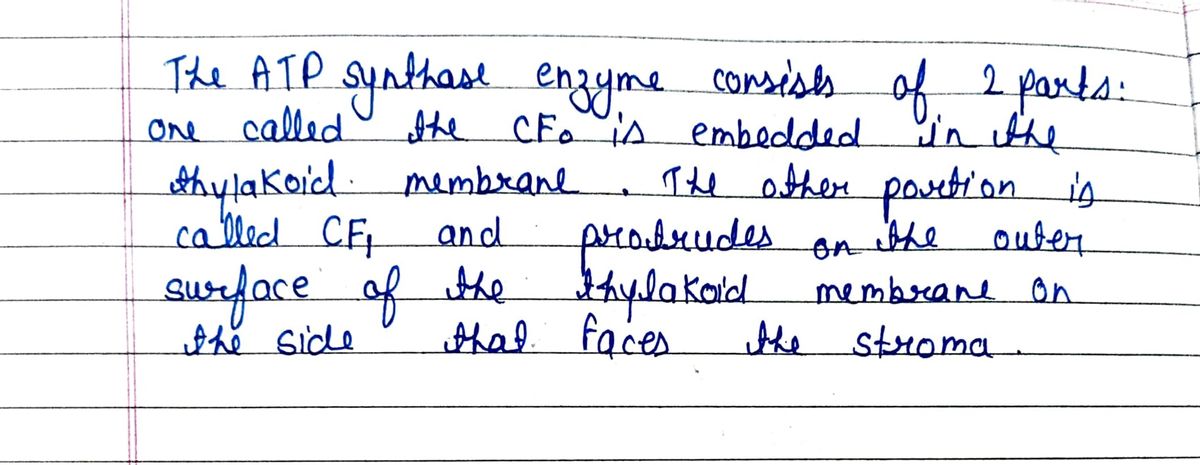 The ATP synthase enzyme consists of 2 parts:
one called the CF₀ is embedded in the
thylakoid membrane. The other portion is
called CF₁ and protrudes on the outer
surface of the thylakoid membrane on
the side that faces the stroma.